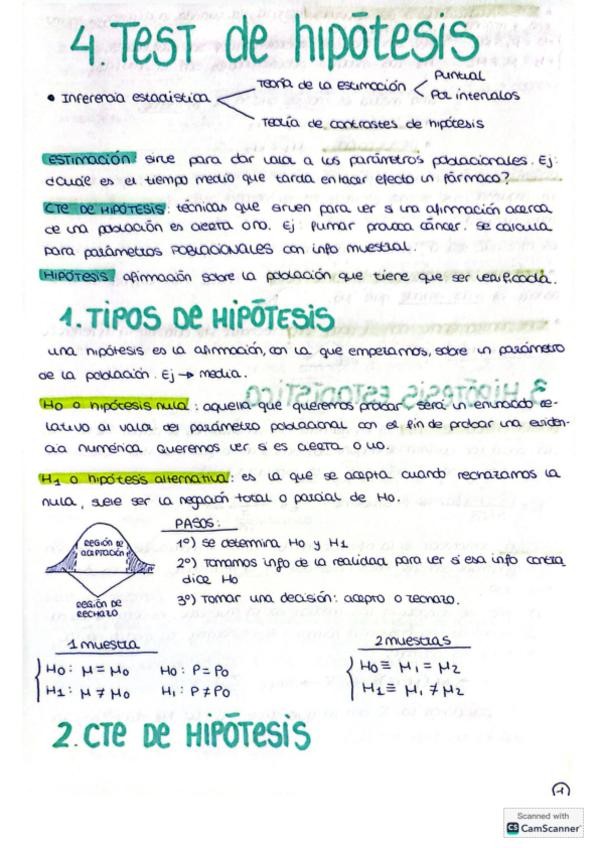 4. TEST de hipótesis
• Inferencia estadística
Teoría de la estimación
Puntual
Por intervalos
Teoría de contrastes de hipótesis
ESTIMACIÓN: sirve para dar valor a los parámetros poblacionales. Ej:
¿Cuál es el tiempo medio que tarda en hacer efecto un fármaco?
CTE DE HIPÓTESIS: técnicas que sirven para ver si una afirmación acerca
de una población es cierta o no. Ej: fumar provoca cáncer. Se calcula
para parámetros POBLACIONALES con info muestral.
HIPÓTESIS afirmación sobre la población que tiene que ser verificada.
1. TIPOS DE HIPÓTESIS
una hipótesis es la afirmación, con la que empezamos, sobre un parámetro
de la población. Ej → media.
H0 o hipótesis nula: aquella que queremos probar. Será un enunciado re-
lativo al valor del parámetro poblacional con el fin de probar una eviden-
cia numérica. Queremos ver si es cierta o no.
H1 o hipótesis alternativa: es la que se acepta cuando rechazamos la
nula, suele ser la negación total o parcial de H0.
REGIÓN DE
ACEPTACIÓN
REGIÓN DE
RECHAZO
PASOS:
1º) Se determina H0 y H1
2º) Tomamos info de la realidad para ver si esa info contra
dice H0
3º) Tomar una decisión: acepto o rechazo.
1 muestra
H0: μ = μ0 H0: P = P0
H1: μ ≠ μ0 H1: P ≠ P0
2 muestras
H0 ≡ μ1 = μ2
H1 ≡ μ1 ≠ μ2
2. CTE DE HIPÓTESIS
1
Scanned with
CS CamScanner